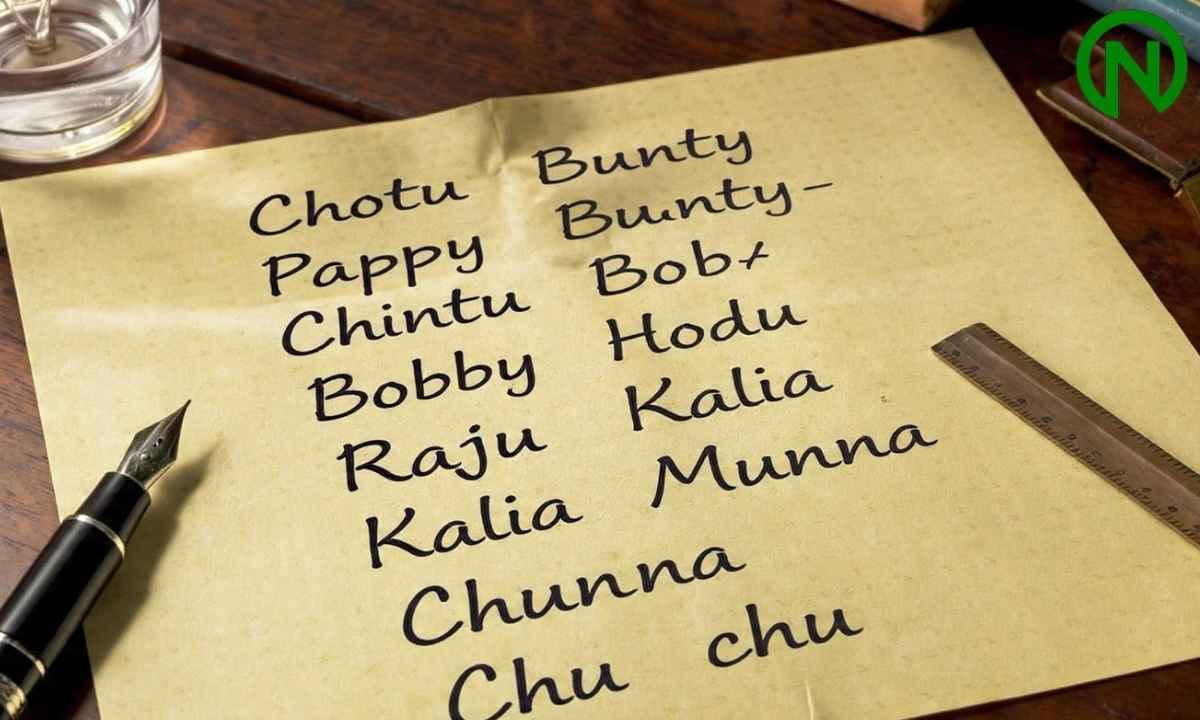 Chotu Bunty
Pappy Buunty-
Chintu Bob
Bobby Hodu
Raju Kalia
Kalia Munna
Chunna
Chu chu
N